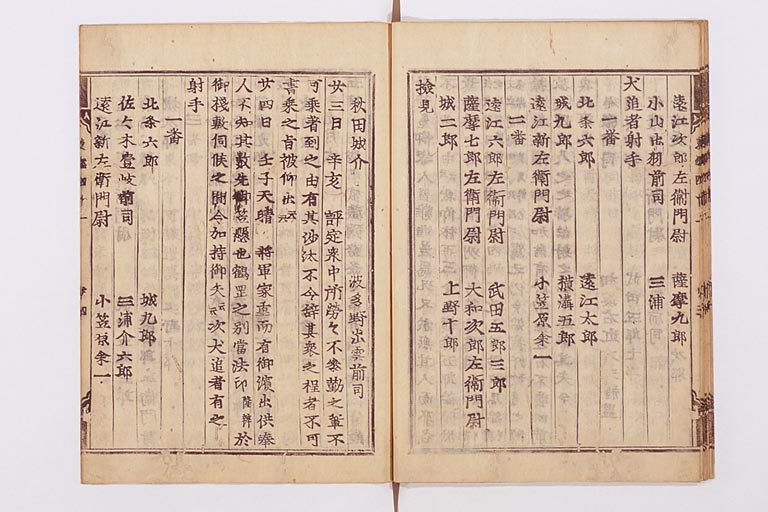 遠江次郎左衞門尉 薩摩九郎
小山出羽前司 三浦
犬追者射手
一番
北条六郎 遠江太郎
城九郎 横溝五郎
遠江新左衞門尉 小笠原余一
二番
遠江六郎左衞門尉 武田五郎三郎
薩摩七郎左衞門尉 大和次郎左衞門尉
城二郎 上野十郎
撿見
秋田城介 波多野出雲前司
廿三日 辛亥 評定衆中所勞々不參勤之輩不
可乗者到之由有其沙汰不令辞其衆之程者不可
書乗之旨被仰出云云
廿四日 壬子天晴 將軍家重而有御濱出供奉
人不知其數先御笠懸也鶴罡之別當法印隆辨於
御棧敷伺候之間令加持御矢云云次犬追者有之
射手
一番
北条六郎 城九郎
佐々木壹岐前司 三浦介六郎
遠江新左衞門尉 小笠原余一